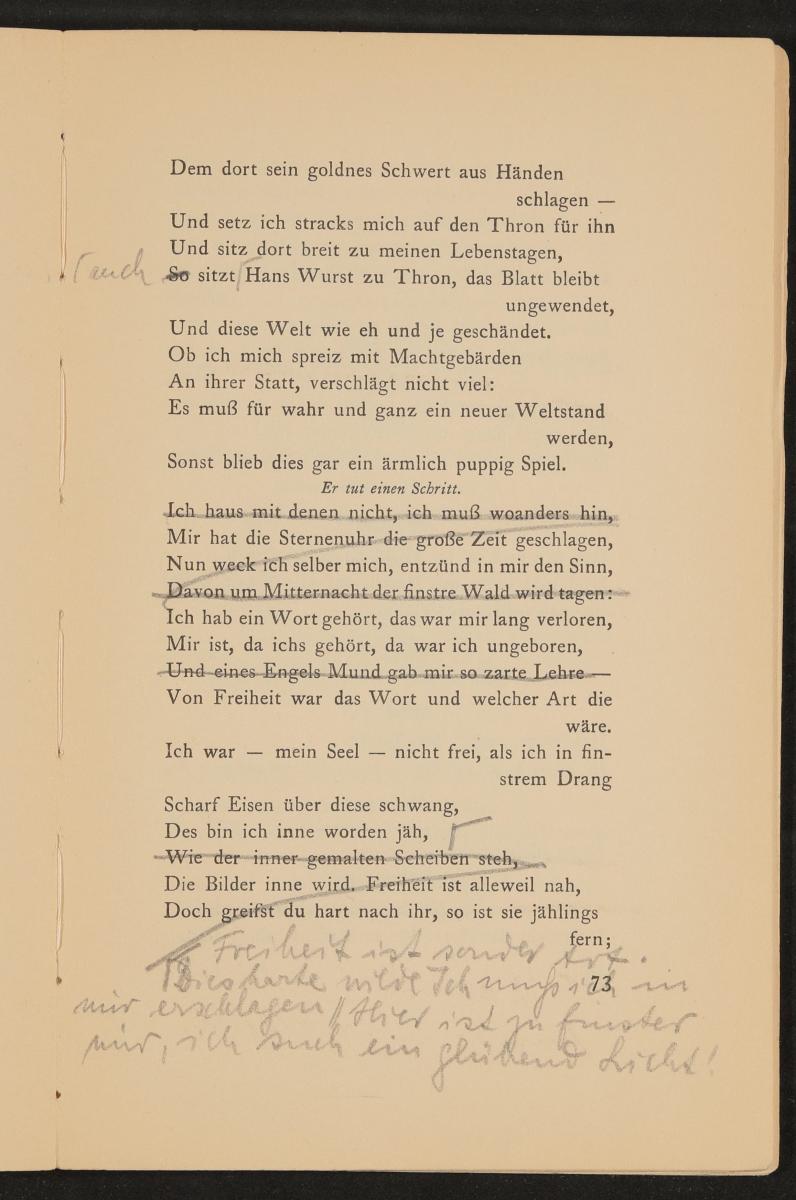 Dem dort sein goldnes Schwert aus Händen
schlagen —
Und setz ich stracks mich auf den Thron für ihn
Und sitz dort breit zu meinen Lebenstagen,
auch So sitzt Hans Wurst zu Thron, das Blatt bleibt
ungewendet,
Und diese Welt wie eh und je geschändet.
Ob ich mich spreiz mit Machtgebärden
An ihrer Statt, verschlägt nicht viel:
Es muß für wahr und ganz ein neuer Weltstand
werden,
Sonst blieb dies gar ein ärmlich puppig Spiel.
Er tut einen Schritt.
Ich haus mit denen nicht, ich muß woanders hin,
Mir hat die Sternenuhr die große Zeit geschlagen,
Nun weck ich selber mich, entzünd in mir den Sinn,
Davon um Mitternacht der finstre Wald wird tagen:
Ich hab ein Wort gehört, das war mir lang verloren,
Mir ist, da ichs gehört, da war ich ungeboren,
Und eines Engels Mund gab mir so zarte Lehre —
Von Freiheit war das Wort und welcher Art die
wäre.
Ich war — mein Seel — nicht frei, als ich in fin-
strem Drang
Scharf Eisen über diese schwang,
Des bin ich inne worden jäh,
Wie der inner gemalten Scheiben steh,
Die Bilder inne wird. Freiheit ist alleweil nah,
Doch greifst du hart nach ihr, so ist sie jählings
fern;
Freiheit ist sonder Art.
73
Dies harte wilde Ich muss ich in
mir erschlagen // Hier ist zu finster
mir, ich such ein glühend Licht!